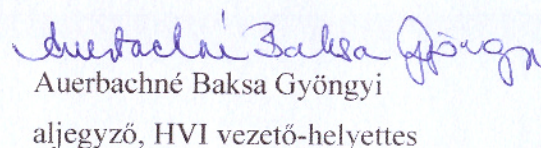 Auerbachné Baksa Gyöngyi
Auerbachné Baksa Gyöngyi
aljegyző, HVI vezető-helyettes